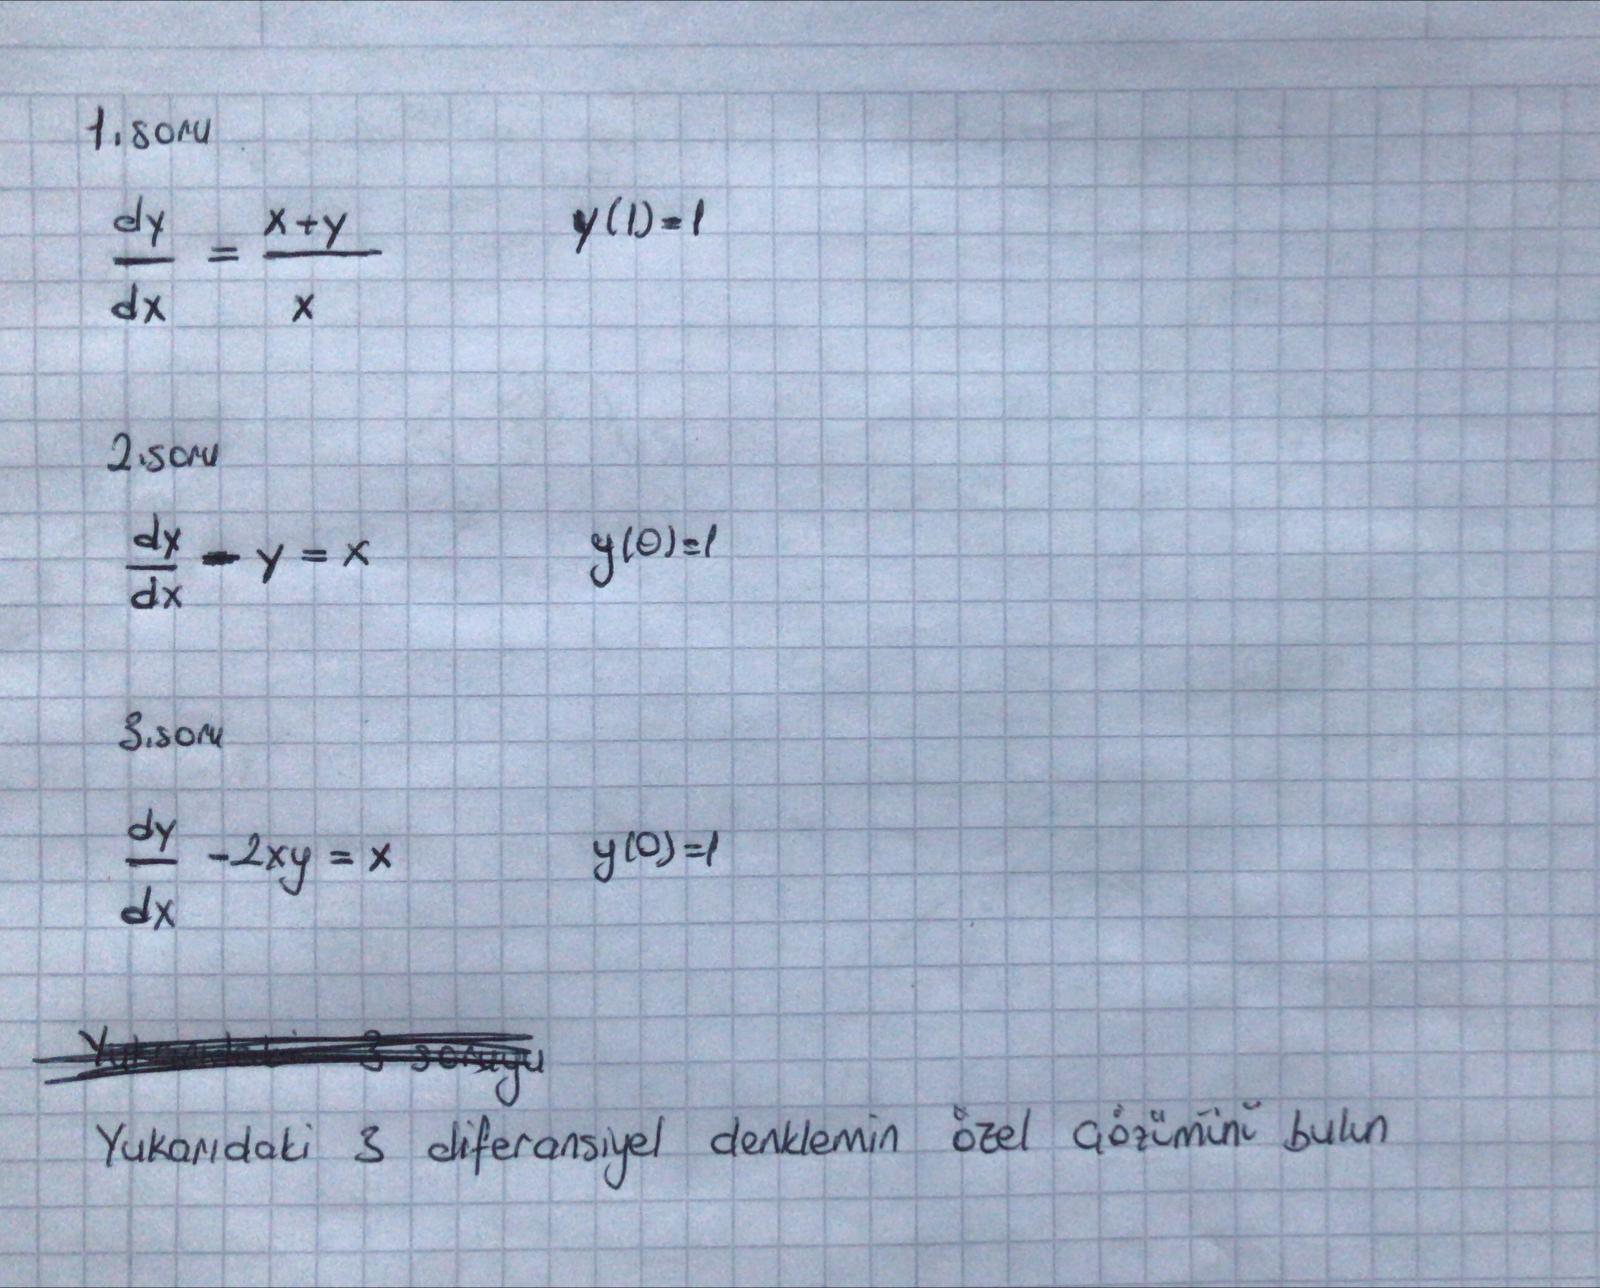 1.soru
dy/dx = x+y/x y(1)=1
2.soru
dx/dx - y = x y(0)=1
3.soru
dy/dx -2xy = x y(0)=1
Yukarıdaki 3 soruyu
Yukarıdaki 3 diferansiyel denklemin özel çözümünü bulun